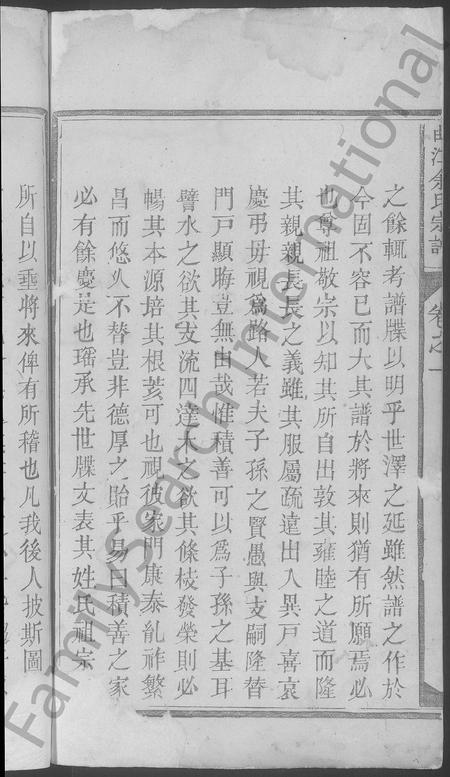 曲江余氏宗譜
卷之一
之餘輒考譜牒以明乎世澤之延雖然譜之作於
今固不容已而大其譜於將來則猶有所願焉必
也尊祖敬宗以知其所自出敦其雍睦之道而隆
其親親長長之義雖其服屬疏遠出入異戸喜哀
慶弔毋視爲路人若夫子孫之賢愚與支嗣隆替
門戸顯晦豈無由哉惟積善可以爲子孫之基耳
譬水之欲其支流四達木之欲其條枝發榮則必
暢其本源培其根荄可也視彼家門康泰胤祚繁
昌而悠久不替豈非德厚之貽乎易曰積善之家
必有餘慶是也瑤承先世牒文表其姓氏祖宗
所自以垂將來俾有所稽也凡我後人披斯圖
FamilySearch International